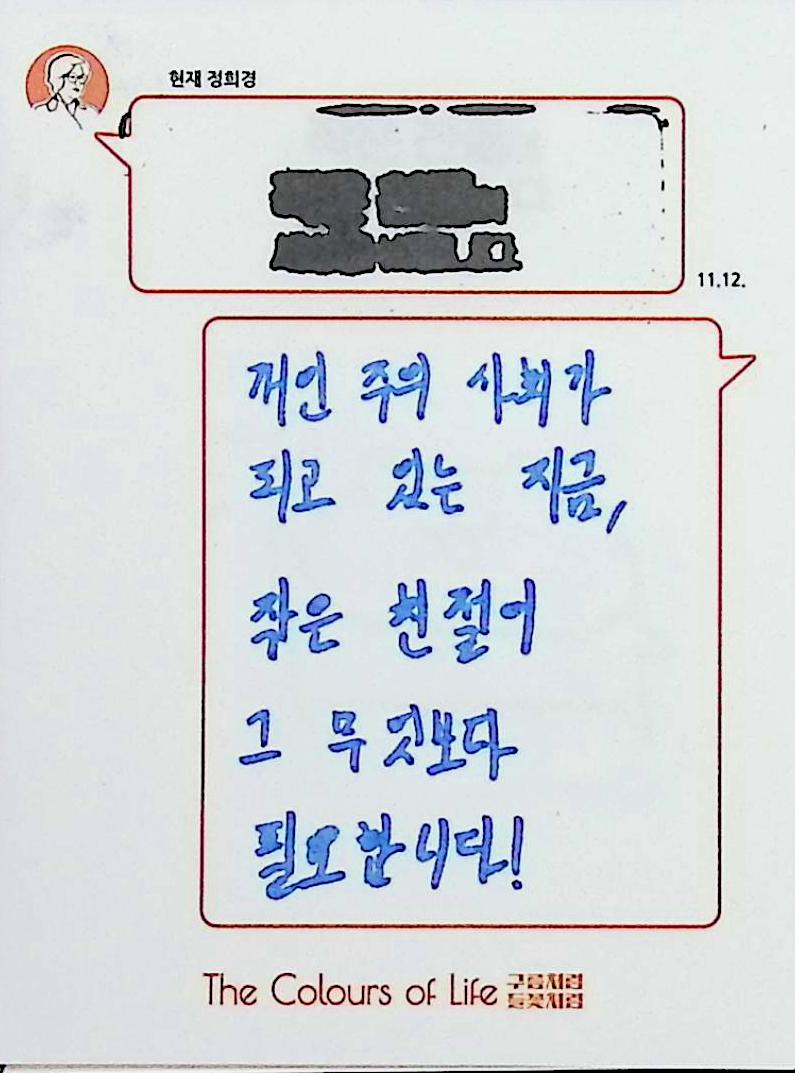 현재 정희경
11.12.
개인 주의 사회가
되고 있는 지금,
작은 친절이
그 무엇보다
필요합니다!
The Colours of Life 구름처럼
들꽃처럼